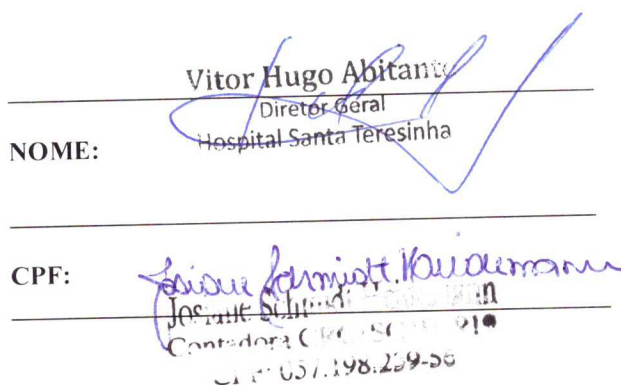 Vitor Hugo Abitante
Diretor Geral
Hospital Santa Teresinha
NOME:
CPF:
Josiane Schmidt
Josiane Schmidt
Contadora CRC/SC
CPF: 037.198.239-56